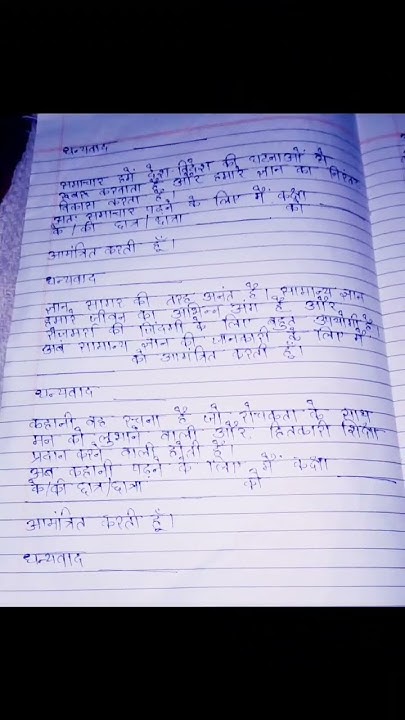 धन्यवाद
समाचार हमें देश विदेश की घटनाओं से
रूबरू करवाता है और हमारे ज्ञान का निरंतर
विकास करता है।
अतः समाचार पढ़ने के लिए मैं कक्षा
के/की छात्र/छात्रा को
आमंत्रित करती हूँ।
धन्यवाद
ज्ञान सागर की तरह अनंत है। सामान्य ज्ञान
हमारे जीवन का अभिन्न अंग है और
रोजमर्रा की जिंदगी के लिए बहुत उपयोगी है।
अब सामान्य ज्ञान की जानकारी के लिए मैं
को आमंत्रित करती हूँ।
धन्यवाद
कहानी वह रचना है जो रोचकता के साथ
मन को लुभाने वाली और हितकारी शिक्षा
प्रदान करने वाली होती है।
अब कहानी पढ़ने के लिए मैं कक्षा
के/की छात्र/छात्रा को
आमंत्रित करती हूँ।
धन्यवाद